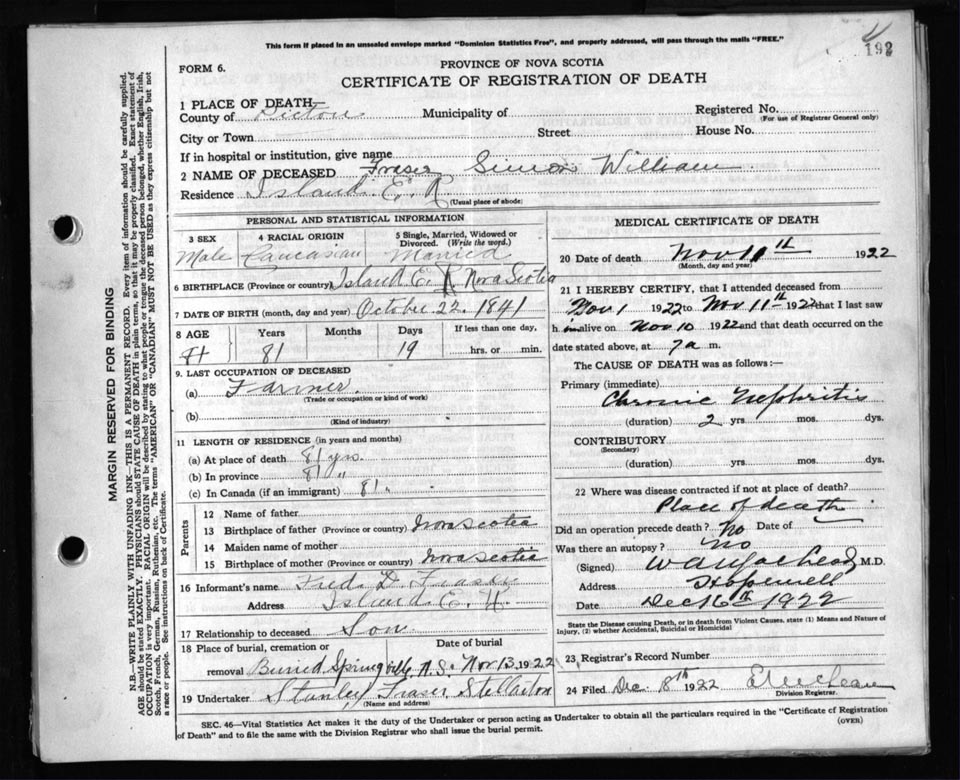 This form if placed in an unsealed envelope marked "Dominion Statistics Free", and properly addressed, will pass through the mails "FREE."
192
FORM 6.
PROVINCE OF NOVA SCOTIA
CERTIFICATE OF REGISTRATION OF DEATH
1 PLACE OF DEATH—
County of Pictou Municipality of Registered No.
(For use of Registrar General only)
City or Town Street House No.
If in hospital or institution, give name
2 NAME OF DECEASED Fraser Simon William
Residence Island E. R
(Usual place of abode)
PERSONAL AND STATISTICAL INFORMATION
3 SEX 4 RACIAL ORIGIN 5 Single, Married, Widowed or Divorced. (Write the word.)
Male Caucasian Married
6 BIRTHPLACE (Province or country) Island E. R Nova Scotia
7 DATE OF BIRTH (month, day and year) October 22. 1841
8 AGE Years Months Days If less than one day,
81 19 hrs. or min.
9. LAST OCCUPATION OF DECEASED
(a) Farmer.
(Trade or occupation or kind of work)
(b)
(Kind of industry)
11 LENGTH OF RESIDENCE (in years and months)
(a) At place of death 81 yrs.
(b) In province 81 "
(c) In Canada (if an immigrant) 81
Parents
12 Name of father
13 Birthplace of father (Province or country) Nova Scotia
14 Maiden name of mother
15 Birthplace of mother (Province or country) Nova Scotia
16 Informant's name Fred D Fraser
Address Island E. R.
17 Relationship to deceased Son
18 Place of burial, cremation or removal Date of burial
Buried Springville, N.S. Nov 13, 1922
19 Undertaker Stanley Fraser Stellarton
(Name and address)
MEDICAL CERTIFICATE OF DEATH
20 Date of death Nov 11th 1922
(Month, day and year)
21 I HEREBY CERTIFY, that I attended deceased from
Nov 1 1922 to Nov 11th 1922 that I last saw
h im alive on Nov 10 1922 and that death occurred on the
date stated above, at 7 a m.
The CAUSE OF DEATH was as follows:—
Primary (immediate)
Chronic Nephritis
(duration) 2 yrs. mos. dys.
CONTRIBUTORY
(Secondary)
(duration) yrs. mos. dys.
22 Where was disease contracted if not at place of death?
Place of death
Did an operation precede death? No Date of
Was there an autopsy? No
(Signed) M.D.
Address Hopewell
Date Dec 16th 1922
State the Disease causing Death, or in death from Violent Causes, state (1) Means and Nature of Injury, (2) whether Accidental, Suicidal or Homicidal
23 Registrar's Record Number
24 Filed Dec. 8th 1922
Division Registrar.
SEC. 46—Vital Statistics Act makes it the duty of the Undertaker or person acting as Undertaker to obtain all the particulars required in the "Certificate of Registration of Death" and to file the same with the Division Registrar who shall issue the burial permit.
(OVER)
MARGIN RESERVED FOR BINDING
N.B.—WRITE PLAINLY WITH UNFADING INK—THIS IS A PERMANENT RECORD. Every item of information should be carefully supplied.
AGE should be stated EXACTLY. PHYSICIANS should STATE CAUSE OF DEATH in plain terms, so that it may be properly classified. Exact statement of
OCCUPATION is very important. RACIAL ORIGIN will be described by stating to what people or tongue the deceased person belonged, whether English, Irish,
Scotch, French, German, Russian, Ruthenian, etc. The terms "AMERICAN" or "CANADIAN" MUST NOT BE USED as they express citizenship but not
a race or people. See instructions on back of Certificate.